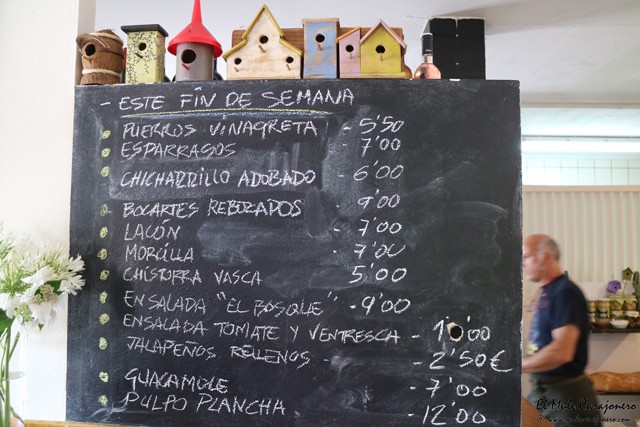 - ESTE FIN DE SEMANA
PUERROS VINAGRETA - 5'50
ESPARRAGOS - 7'00
CHICHARRILLO ADOBADO - 6'00
BOCARTES REBOZADOS - 9'00
LACÓN - 7'00
MORCILLA - 7'00
CHISTORRA VASCA 5'00
ENSALADA "EL BOSQUE" - 9'00
ENSALADA TOMATE Y VENTRESCA - 10'00
JALAPEÑOS RELLENOS - - 2'50€
GUACAMOLE - 7'00
PULPO PLANCHA - 12'00
El Mule Carajonero
www.mulecarajonero.com